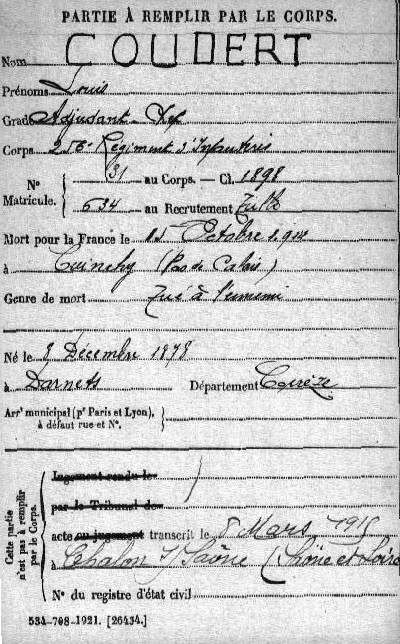 PARTIE À REMPLIR PAR LE CORPS.
Nom COUDERT
Prénoms Louis
Grade Adjudant-Chef
Corps 256e Régiment d'Infanterie
N° Matricule. 31 au Corps. — Cl. 1898
634 au Recrutement Tulle
Mort pour la France le Octobre 1914
à Cuinchy (Pas de Calais)
Genre de mort Tué à l'ennemi
Né le 8 Décembre 1878
à Darnets Département Corrèze
Arrt municipal (pr Paris et Lyon),
à défaut rue et N°.
Cette partie n'est pas à remplir par le Corps.
Jugement rendu le
par le Tribunal de
acte ou jugement transcrit le 8 Mars 1915
à Chalon s/ Saône (Saône et Loire
N° du registre d'état civil
534-708-1921. [26434.]